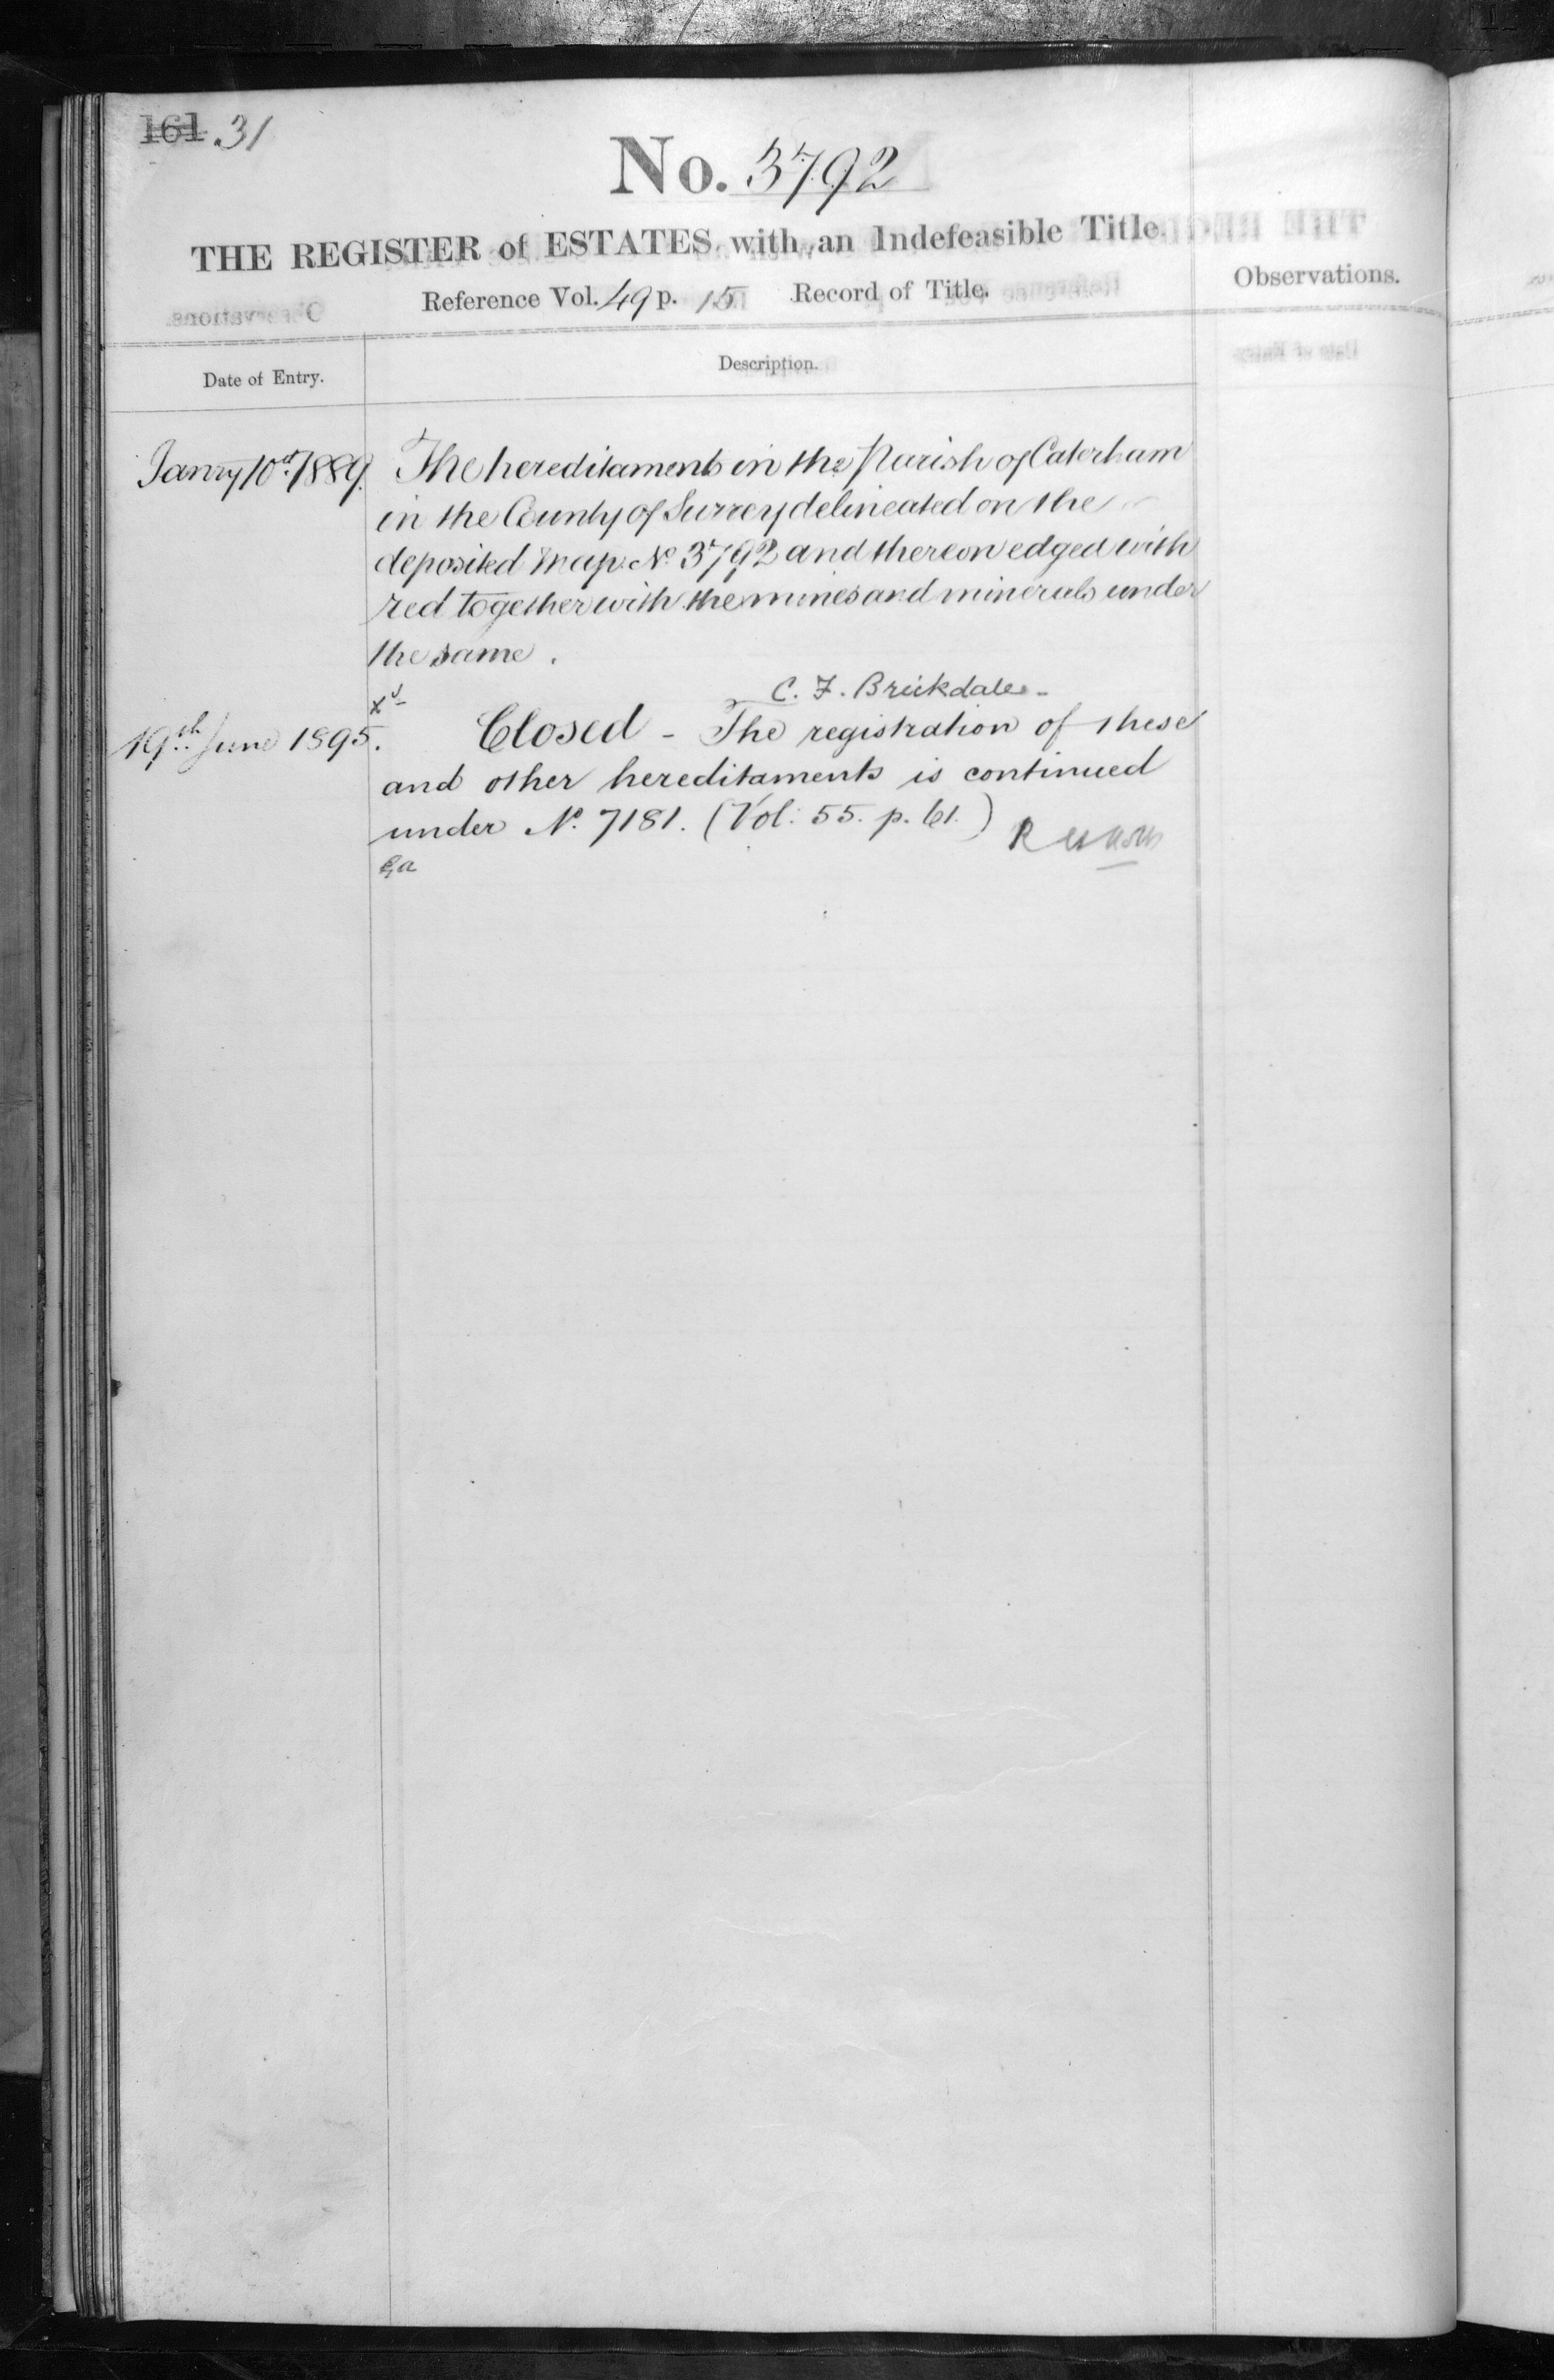 161. 31
No. 3792
THE REGISTER of ESTATES with an Indefeasible Title.
Reference Vol. 49 p. 15 Record of Title.
Observations.
Date of Entry.
Description.
Janry 10th 1889. The hereditaments in the Parish of Caterham
in the County of Surrey delineated on the
deposited Map No 3792 and thereon edged with
red together with the mines and minerals under
the same.
C. F. Brickdale -
19th June 1895. Closed - The registration of these
and other hereditaments is continued
under No. 7181. (Vol: 55. p. 61.)